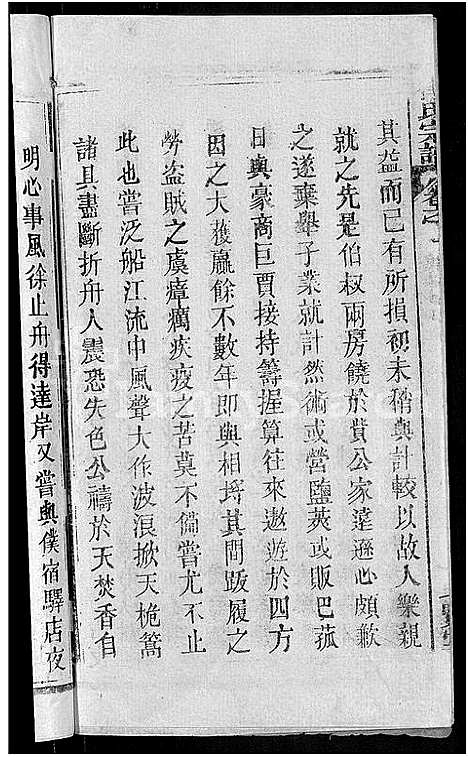 其益而己有所損初未稍與計較以故人樂親
就之先是伯叔兩房饒於貲公家遠遜心頗歉
之遂棄舉子業就計然術或營鹽莢或販巴菰
日與豪商巨賈接持籌握算往來遨遊於四方
因之大獲贏餘不數年即與相埒其間跋履之
勞盜賊之虞瘴癘疾疫之苦莫不備嘗尤不止
此也嘗泛船江流中風聲大作波浪掀天桅篙
諸具盡斷折舟人震恐失色公禱於天焚香自
明心事風徐止舟得達岸又嘗與僕宿驛店夜